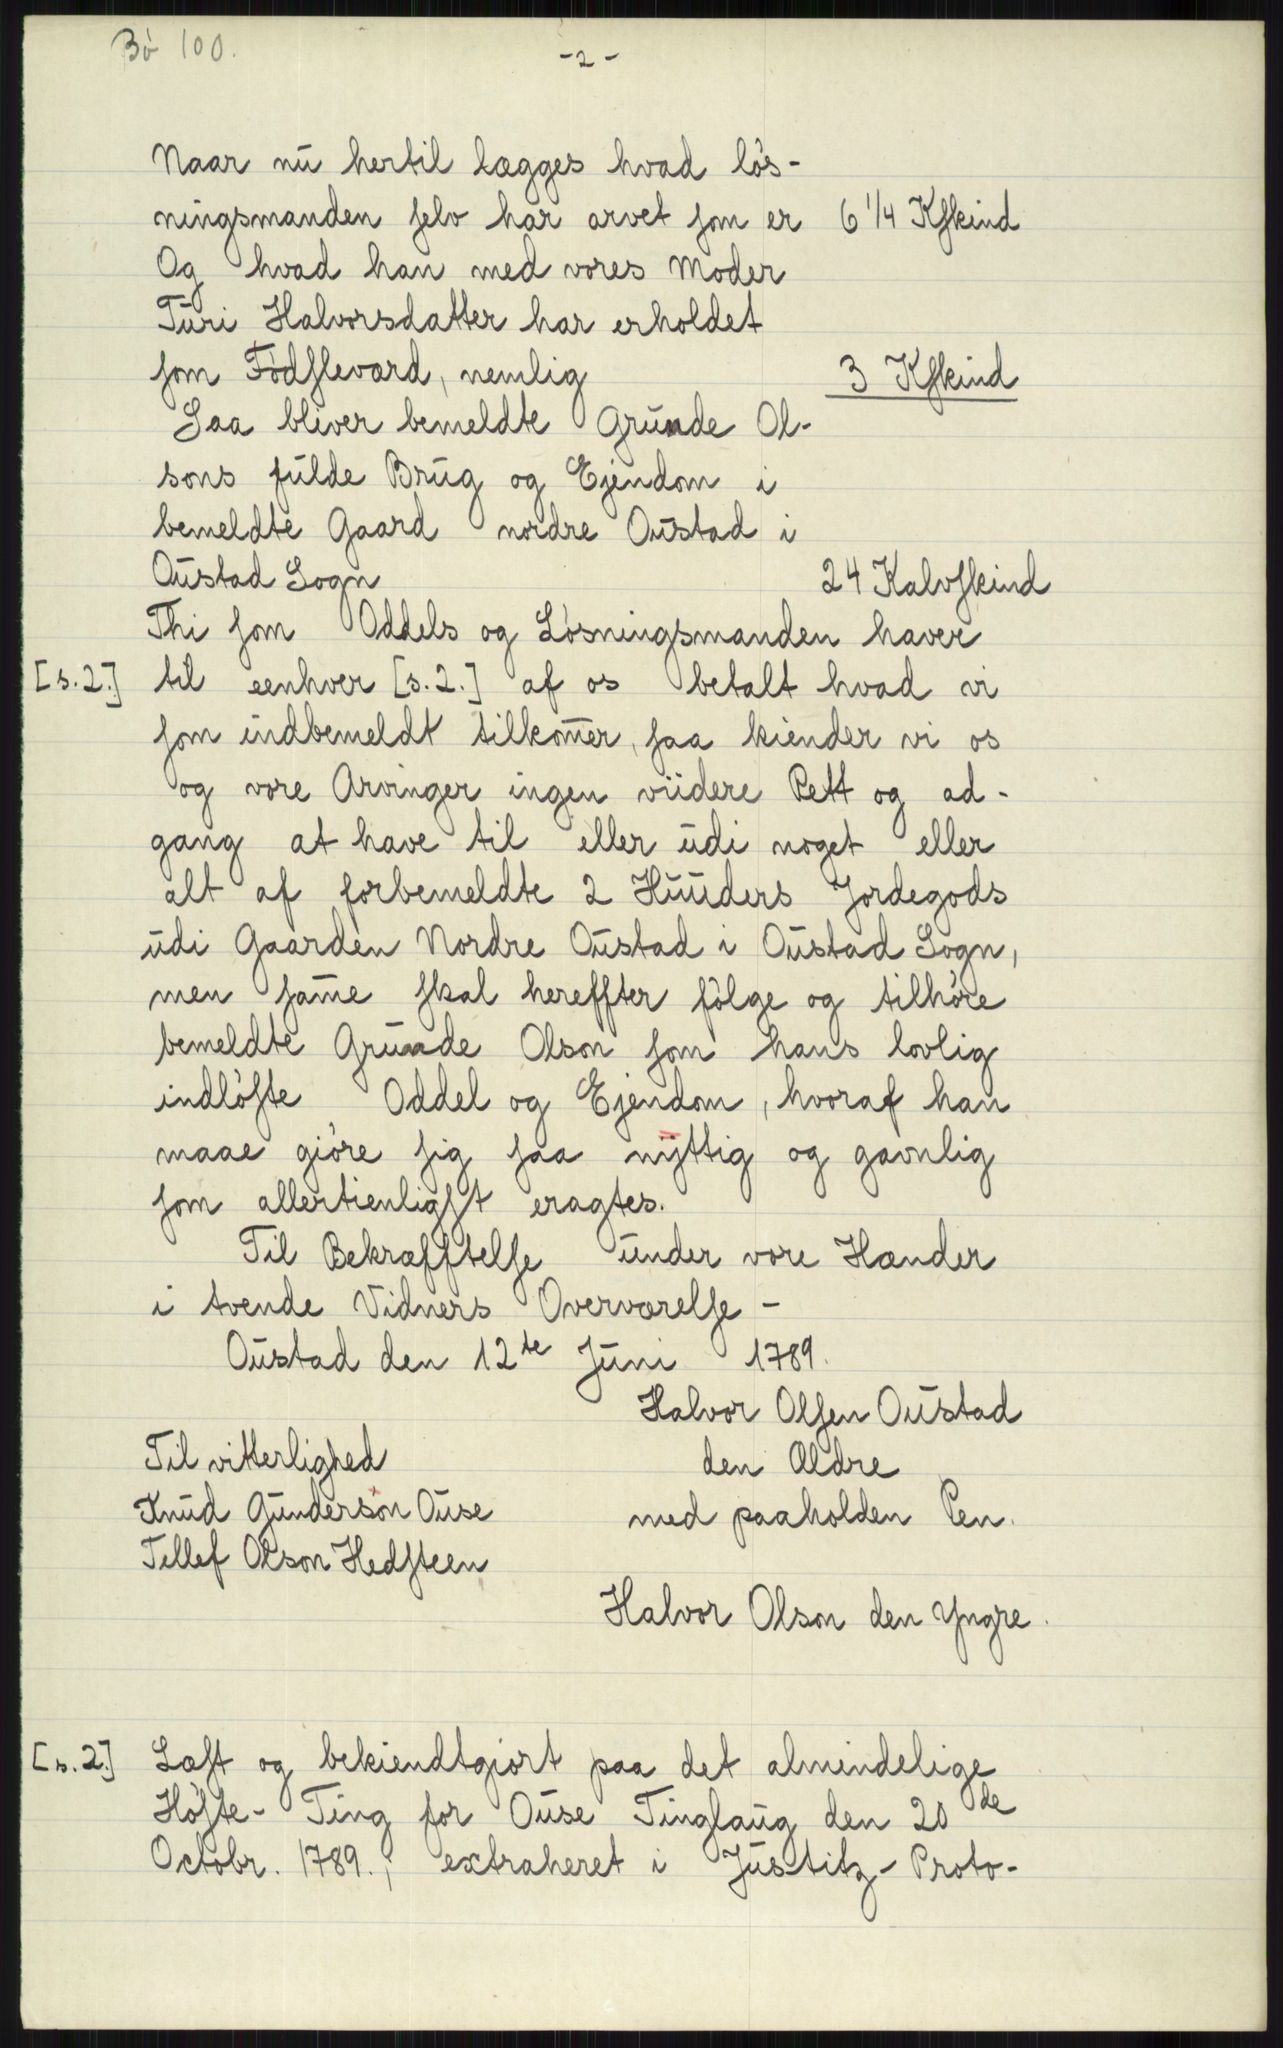 Bö 100.
- 2 -
Naar nu hertil lægges hvad lös-
ningsmanden selv har arvet som er 6 1/4 Kskind
Og hvad han med vores Moder
Turi Halvorsdatter har erholdet
som Födslevard, nemlig 3 Kskind
Saa bliver bemeldte Grunde Ol-
sons fulde Brug og Ejendom i
bemeldte Gaard nordre Oustad i
Oustad Sogn 24 Kalvskind
Thi som Oddels og Lösningsmanden haver
[s. 2.] til eenhver [s. 2.] af os betalt hvad vi
som indbemeldt tilkom̅er, saa kiender vi os
og vore Arvinger ingen viidere Rett og ad-
gang at have til eller udi noget eller
alt af forbemeldte 2 Huuders Jordegods
udi Gaarden Nordre Oustad i Oustad Sogn,
men sam̅e skal hereffter fölge og tilhöre
bemeldte Grunde Olson som hans lovlig
indlöste Oddel og Ejendom, hvoraf han
maae giöre sig saa nÿttig og gavnlig
som allertienligst eragtes.
Til Bekræfftelse under vore Hænder
i tvende Vidners Overværelse -
Oustad den 12te Juni 1789.
Halvor Olsen Oustad
den Ældre
med paaholden Pen.
Til vitterlighed
Knud Gunderson Ouse
Tellef Olson Hedsteen
Halvor Olson den Yngre.
[s. 2.] Læst og bekiendtgiort paa det almindelige
Höste- Ting for Ouse Tinglaug den 20de
Octobr. 1789., extraheret i Justitz- Proto-